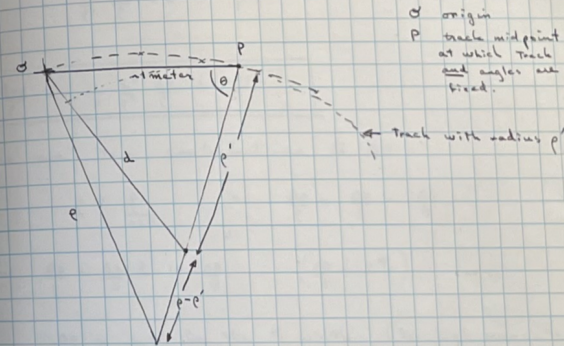 σ origin
P track midpoint
at which track
and angles are
fixed.
σ
P
~1 meter
θ
ρ'
track with radius ρ'
d
ρ
ρ-ρ'